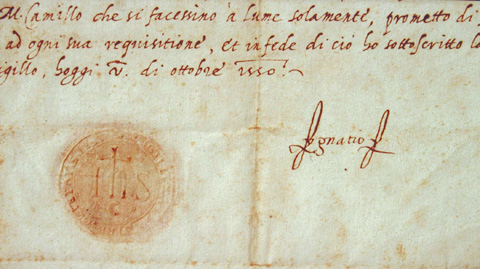 M. Camillo che si facessino à lume solamente, prometto di
ad ogni sua requisitione, et in fede di ciò ho sottoscritto lo
igillo, hoggi v. di ottobre 1550.
Ignatio
ihs